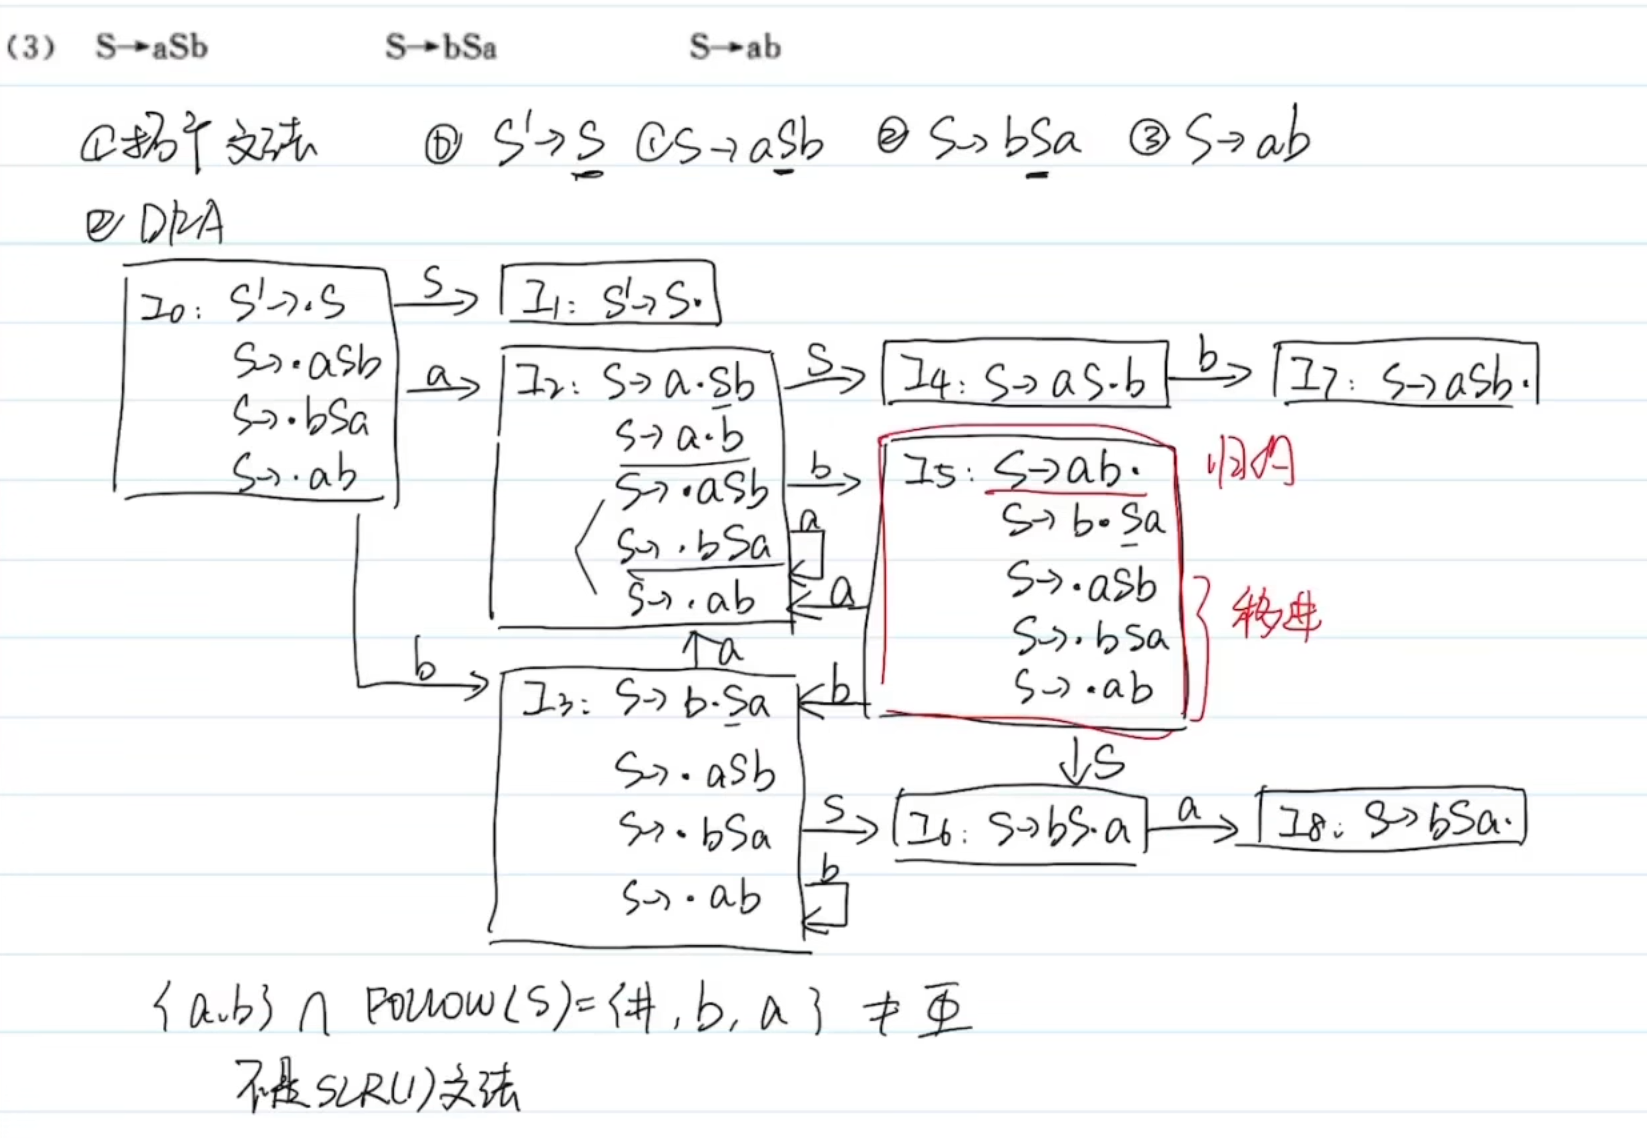 (3) S→aSb S→bSa S→ab
①拓广文法 ⓪ S'→S ①S→aSb ② S→bSa ③ S→ab
② DFA
I0: S'→·S
S→·aSb
S→·bSa
S→·ab
S
I1: S'→S·
a
I2: S→a·Sb
S→a·b
S→·aSb
S→·bSa
S→·ab
S
I4: S→aS·b
b
I7: S→aSb·
b
a
I5: S→ab·
S→b·Sa
S→·aSb
S→·bSa
S→·ab
归约
移进
a
b
a
b
I3: S→b·Sa
S→·aSb
S→·bSa
S→·ab
S
S
b
I6: S→bS·a
a
I8: S→bSa·
{a,b} ∩ FOLLOW(S)={#, b, a} ≠ Φ
不是SLR(1)文法